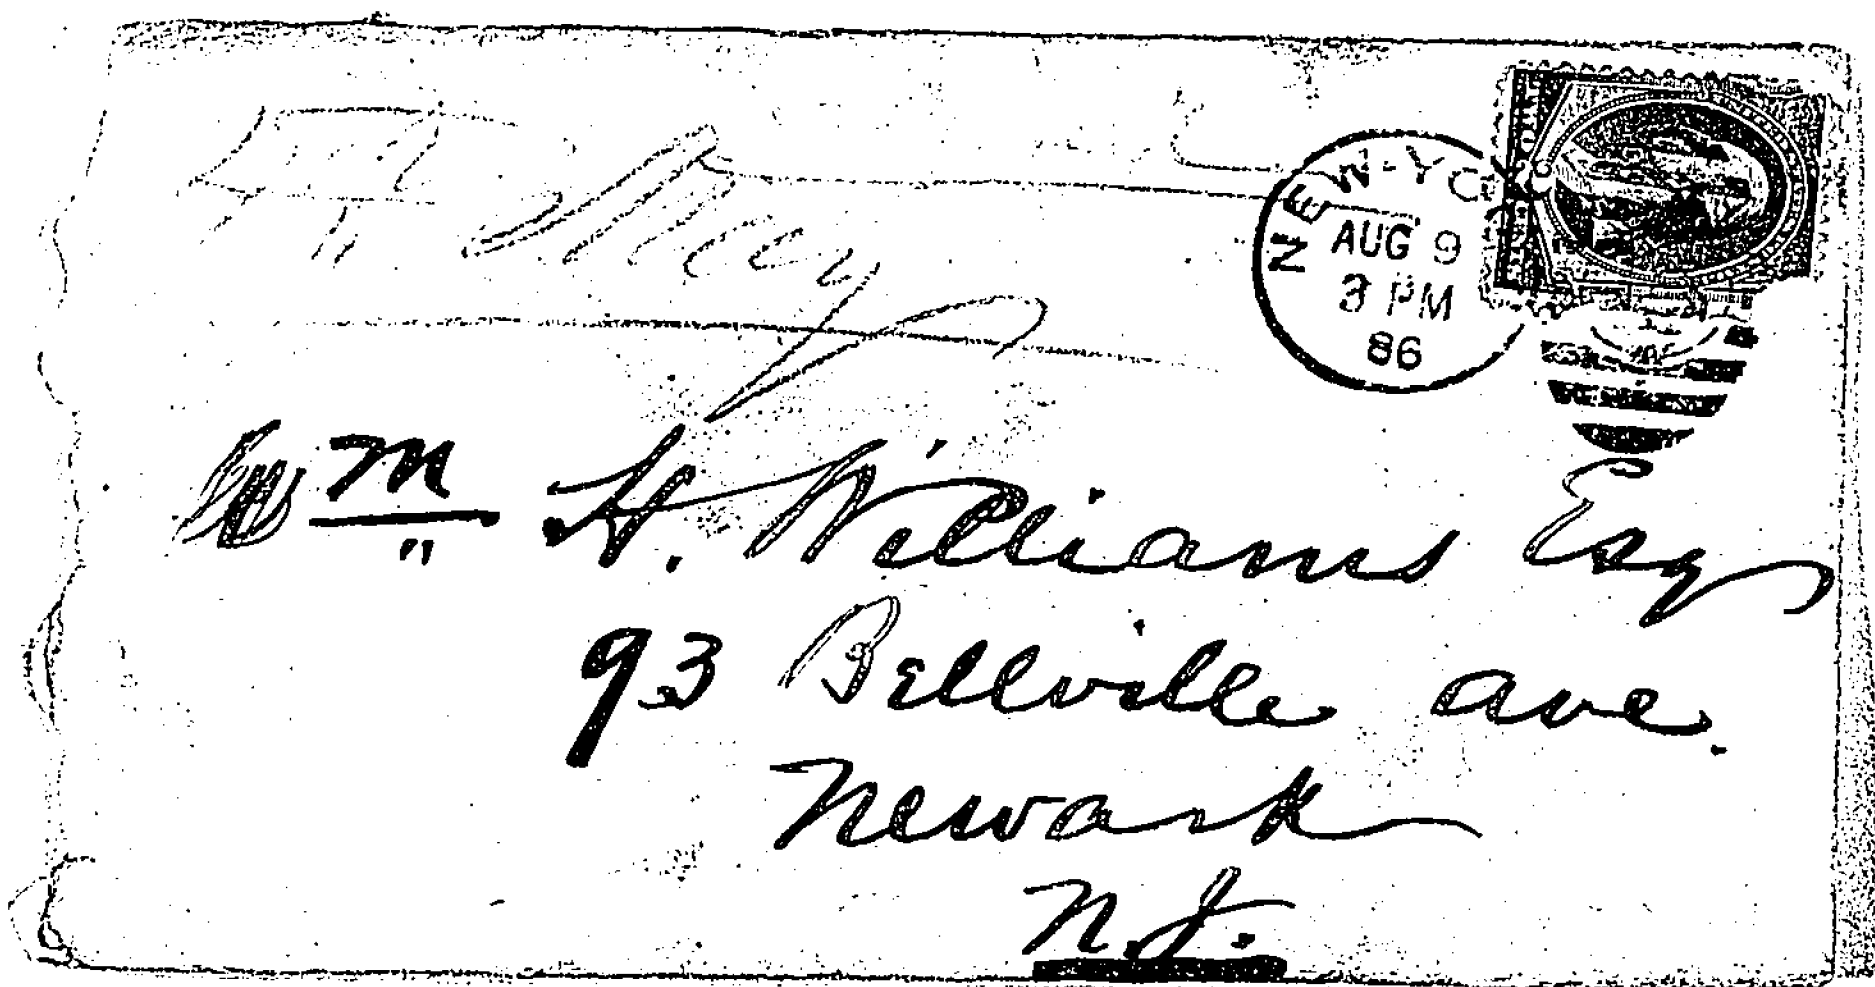 NEW-YO
AUG 9
3 PM
86
Wm H. Williams Esq
93 Bellville ave.
Newark
N.J.